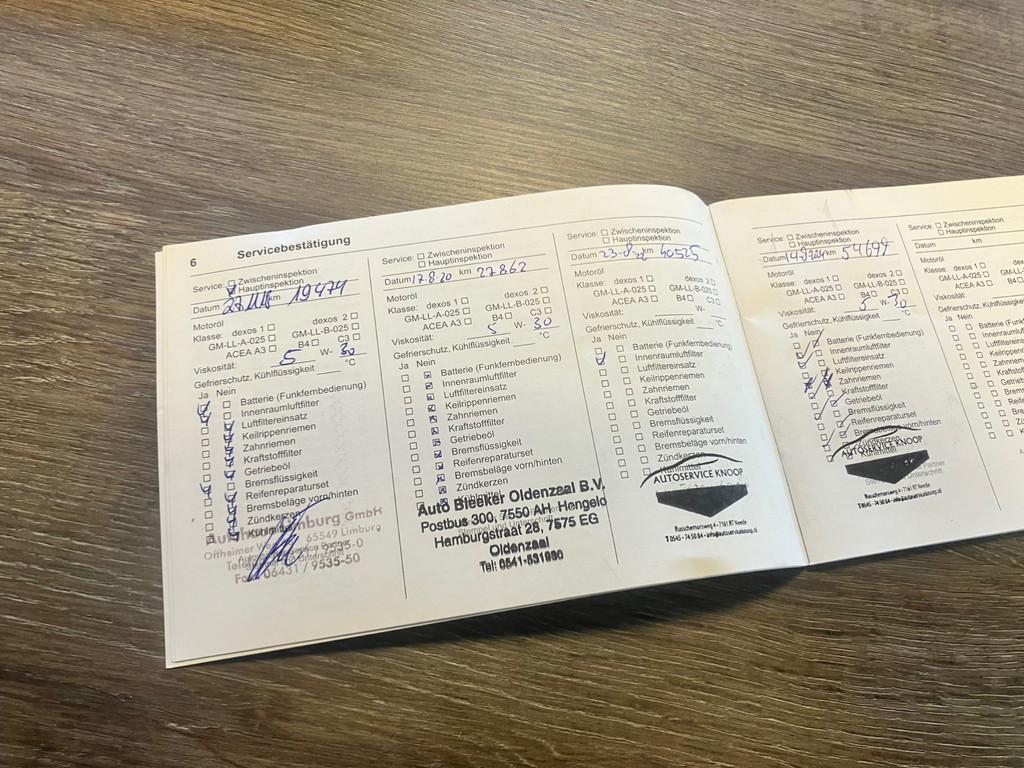 6 Servicebestätigung
Service: Zwischeninspektion
Hauptinspektion
Datum km 19474
Motoröl
Klasse: dexos 1 dexos 2
GM-LL-A-025 GM-LL-B-025
ACEA A3 B4 C3
Viskosität: 5 W- 30
Gefrierschutz, Kühlflüssigkeit °C
Ja Nein
Batterie (Funkfernbedienung)
Innenraumluftfilter
Luftfiltereinsatz
Keilrippenriemen
Zahnriemen
Kraftstofffilter
Getriebeöl
Bremsflüssigkeit
Reifenreparaturset
Bremsbeläge vorn/hinten
Zündkerzen
Kühlmittel
Limburg GmbH
65549 Limburg
Offheimer
06431 / 9535-50
Service: Zwischeninspektion
Hauptinspektion
Datum 17-8-20 km 27862
Motoröl
Klasse: dexos 1 dexos 2
GM-LL-A-025 GM-LL-B-025
ACEA A3 B4 C3
Viskosität: 5 W- 30
Gefrierschutz, Kühlflüssigkeit °C
Ja Nein
Batterie (Funkfernbedienung)
Innenraumluftfilter
Luftfiltereinsatz
Keilrippenriemen
Zahnriemen
Kraftstofffilter
Getriebeöl
Bremsflüssigkeit
Reifenreparaturset
Bremsbeläge vorn/hinten
Zündkerzen
Kühlmittel
Auto Bleeker Oldenzaal B.V.
Postbus 300, 7550 AH Hengelo
Hamburgstraat 26, 7575 EG
Oldenzaal
Tel: 0541-531990
Service: Zwischeninspektion
Hauptinspektion
Datum km 40525
Motoröl
Klasse: dexos 1 dexos 2
GM-LL-A-025 GM-LL-B-025
ACEA A3 B4 C3
Viskosität: W-
Gefrierschutz, Kühlflüssigkeit °C
Ja Nein
Batterie (Funkfernbedienung)
Innenraumluftfilter
Luftfiltereinsatz
Keilrippenriemen
Zahnriemen
Kraftstofffilter
Getriebeöl
Bremsflüssigkeit
Reifenreparaturset
Bremsbeläge vorn/hinten
Zündkerzen
Kühlmittel
AUTOSERVICE KNOOP
Russchemorsweg 4 - 7161 RT Neede
T 0545 - 74 50 84 - info@autoserviceknoop.nl
Service: Zwischeninspektion
Hauptinspektion
Datum km 54699
Motoröl
Klasse: dexos 1 dexos 2
GM-LL-A-025 GM-LL-B-025
ACEA A3 B4 C3
Viskosität: 5 30
Gefrierschutz, Kühlflüssigkeit °C
Ja Nein
Batterie (Funkfernbedienung)
Innenraumluftfilter
Luftfiltereinsatz
Keilrippenriemen
Zahnriemen
Kraftstofffilter
Getriebeöl
Bremsflüssigkeit
Reifenreparaturset
Bremsbeläge vorn/hinten
Zündkerzen
Kühlmittel
AUTOSERVICE KNOOP
Russchemorsweg 4 - 7161 RT Neede
T 0545 - 74 50 84 - info@autoserviceknoop.nl
Service: Zwischeninspektion
Hauptinspektion
Datum km
Motoröl
Klasse: dexos 1
GM-LL-A-025
ACEA A3
Viskosität:
Gefrierschutz, Kühlflüssig
Ja Nein